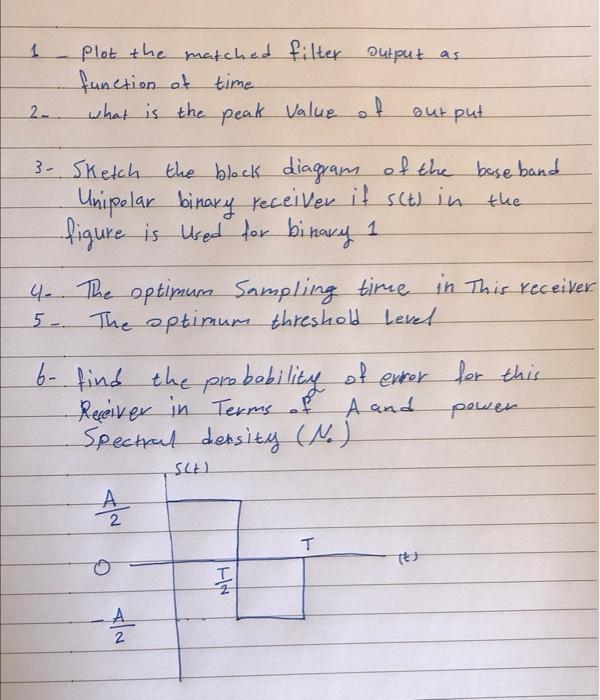 1 - Plot the matched filter output as
function of time
2 -. what is the peak Value of output
3 -. Sketch the block diagram of the baseband
Unipolar binary receiver if s(t) in the
figure is Used for binary 1
4 -. The optimum Sampling time in This receiver
5 -. The optimum threshold Level
6 -. find the probability of error for this
Receiver in Terms of A and power
Spectral density (N₀)
S(t)
A/2
T
0
(t)
T/2
-A/2